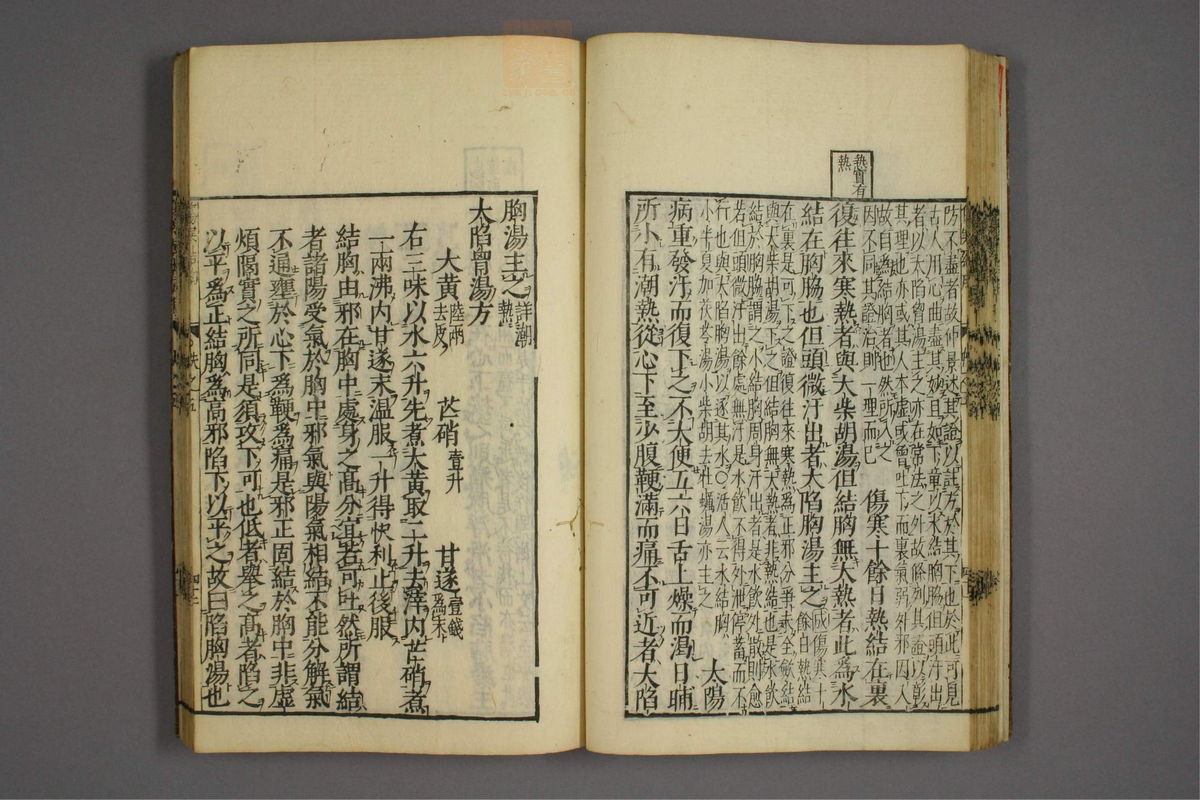 熱實有
熱
防不盡者故仲景述其證以註方於其下也於此可見
古人用心曲盡其妙且如下章以水結胸脇但頭汗出
者以大陷胷湯主之亦在常法之外故條列其證以彰
其理也亦或其人本虛或曾吐下而裏氣弱外邪因入
故自爲結胸者也然所入之
因不同其證治則一理而已
傷寒十餘日熱結在裏
復往來寒熱者與大柴胡湯但結胸無大熱者此爲水
結在胸脇也但頭微汗出者大陷胸湯主之
成傷寒十
餘日熱結
在裏是可下之證復往來寒熱爲正邪分爭未全斂結
與大柴胡湯下之但結胸無大熱者非熱結也是水飲
結於胸脇謂之水結胸周身汗出者是水飲外散則愈
若但頭微汗出餘處無汗是水飲不得外泄停蓄而不
行也與大陷胸湯以逐其水○活人云水結胸
小半夏加茯苓湯小柴胡去棗加牡蠣湯亦主之
太陽
病重發汗而復下之不大便五六日舌上燥而渴日晡
所小有潮熱從心下至少腹鞕滿而痛不可近者大陷
胸湯主之
詳潮
熱
大陷胷湯方
大黃
陸兩
去皮
芒硝
壹升
甘遂
壹錢
爲末
右三味以水六升先煮大黃取二升去滓內芒硝煮
一兩沸內甘遂末溫服一升得快利止後服
結胸由邪在胸中處身之高分宜若可吐然所謂結
者諸陽受氣於胸中邪氣與陽氣相結不能分解氣
不通壅於心下爲鞕爲痛是邪正固結於胸中非虛
煩膈實之所同是須攻下可也低者舉之高者陷之
以平爲正結胸爲高邪陷下以平之故曰陷胸湯也